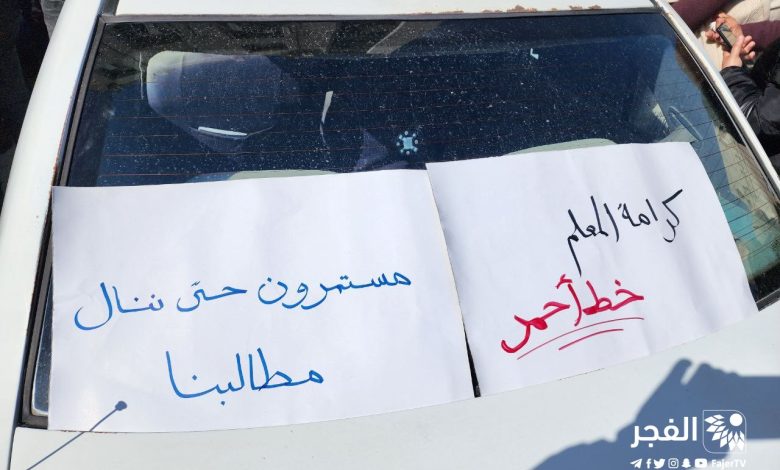 كرامة المعلم
خط أحمر
مستمرون حتى ننال
مطالبنا
الفجر
FajerTV